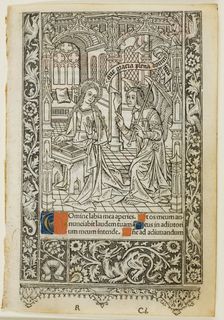 gracia plena
Omine labia mea aperies. Et os meum an
nunciabit laudem tuam. Deus in adiutori
um meum intende. ne ad adiuuandum